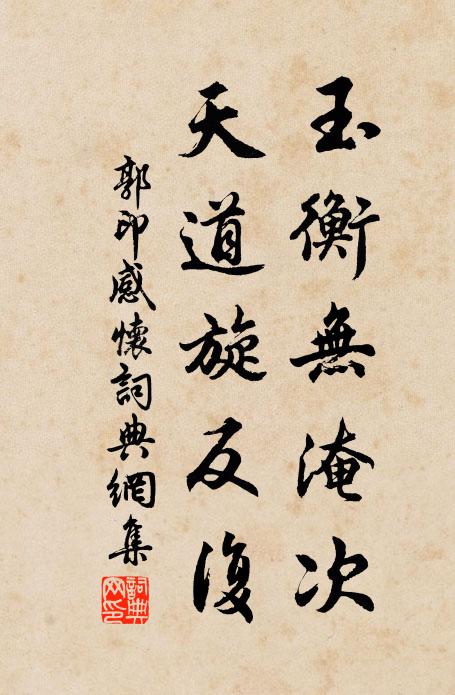 玉衡無淹次
天道旋反復
郭印感懷詞典網集
詞典網印